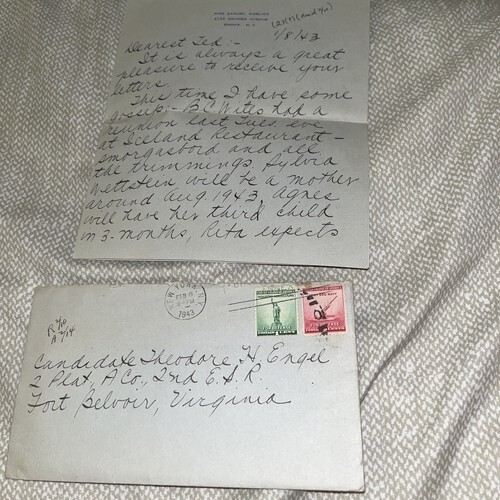 (2/8/43)
1/8/43
Dearest Ted:-
It is always a great
pleasure to receive your
letters.
This time I have some
gossip:- B.C. Wites had a
reunion last Tues. eve
at Iceland Restaurant-
smorgasbord and all
the trimmings. Sylvia
Wettstein will be a mother
around Aug. 1943, Agnes
will have her third child
in 3-months, Rita expects
NEW YORK, N.Y.
FEB 8
PM
1943
R 2/10
A 2/14
Candidate Theodore H. Engel
2 Plat, A Co., 2nd E.S.R.
Fort Belvoir, Virginia